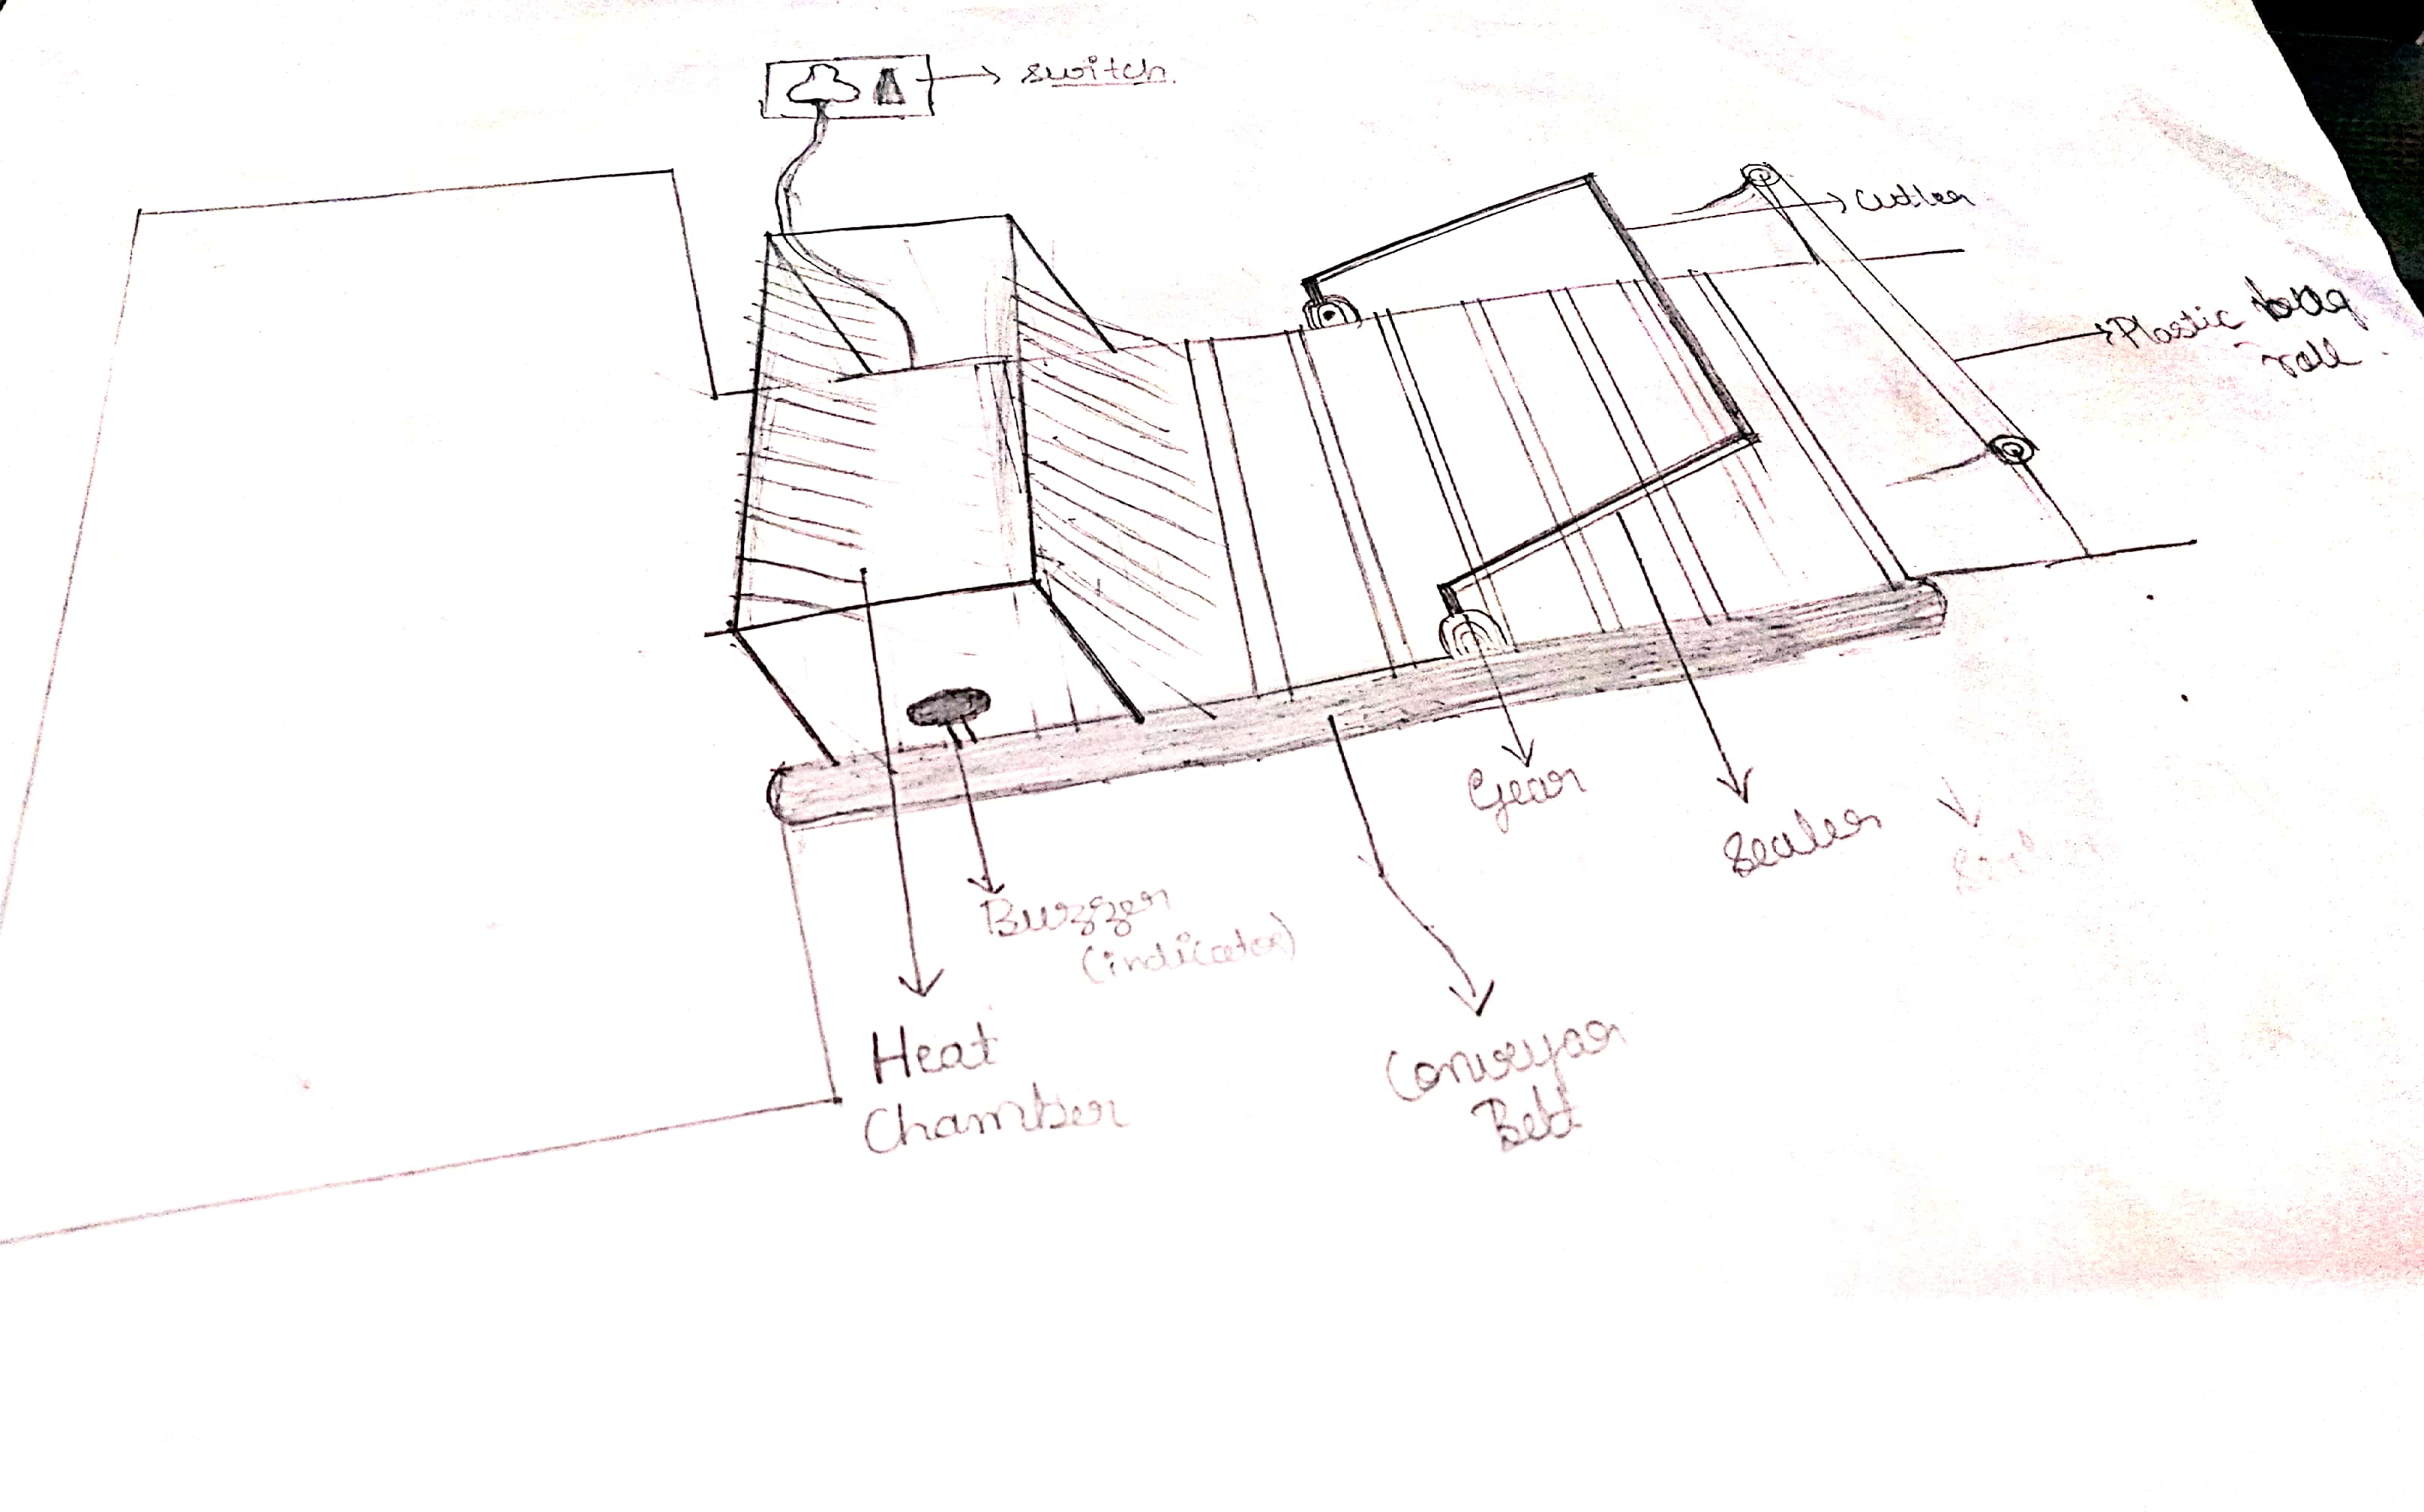 switch.
cutter
Plastic bag
roll.
Gear
Sealer
Buzzer
(indicator)
Heat
Chamber
Conveyor
Belt